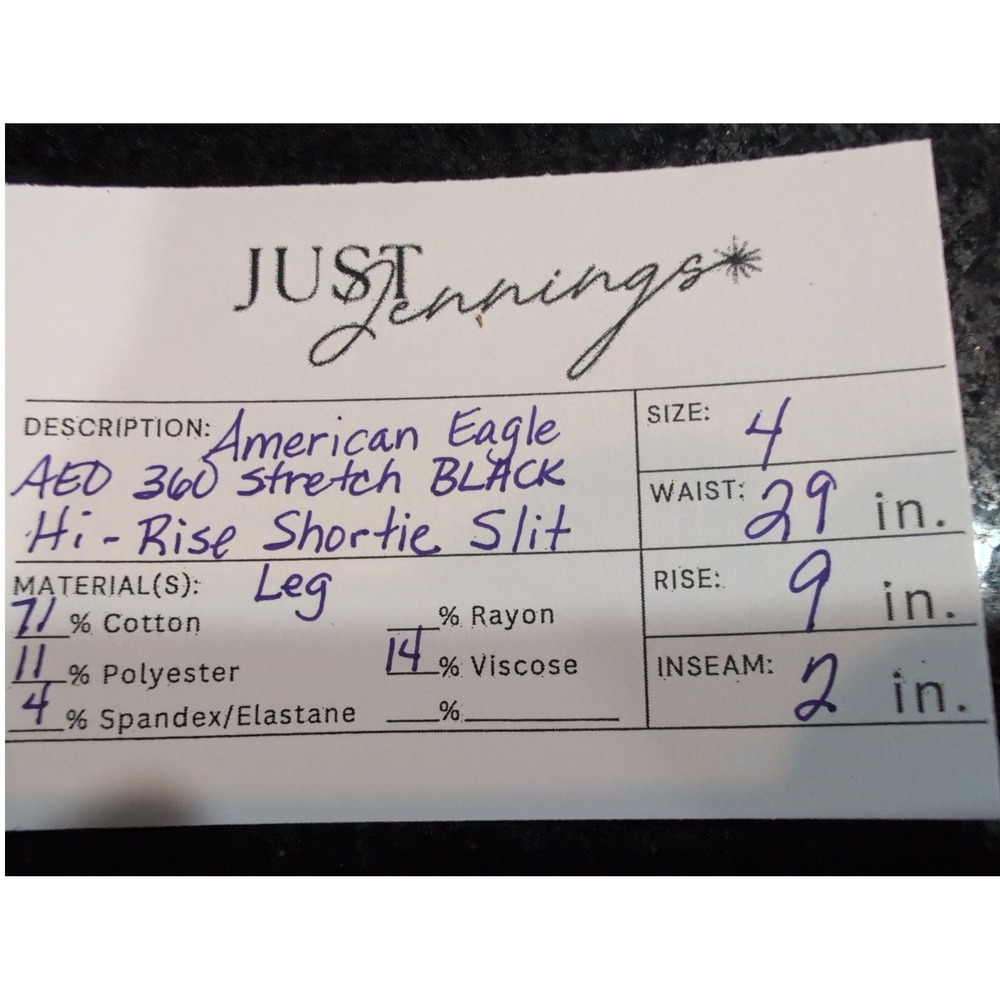 JUST Jennings*
DESCRIPTION: American Eagle
AEO 360 stretch BLACK
Hi-Rise Shortie Slit
Leg
SIZE: 4
WAIST: 29 in.
RISE: 9 in.
INSEAM: 2 in.
MATERIAL(S):
71% Cotton
___% Rayon
11% Polyester
14% Viscose
4% Spandex/Elastane
___%___